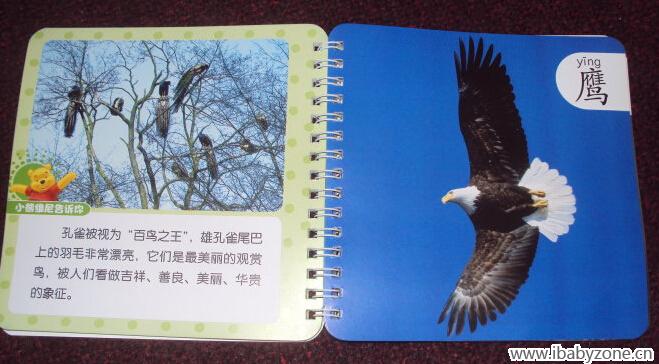 小熊维尼告诉你
孔雀被视为“百鸟之王”，雄孔雀尾巴
上的羽毛非常漂亮，它们是最美丽的观赏
鸟，被人们看做吉祥、善良、美丽、华贵
的象征。
yīng
鹰
www.ibabyzone.cn